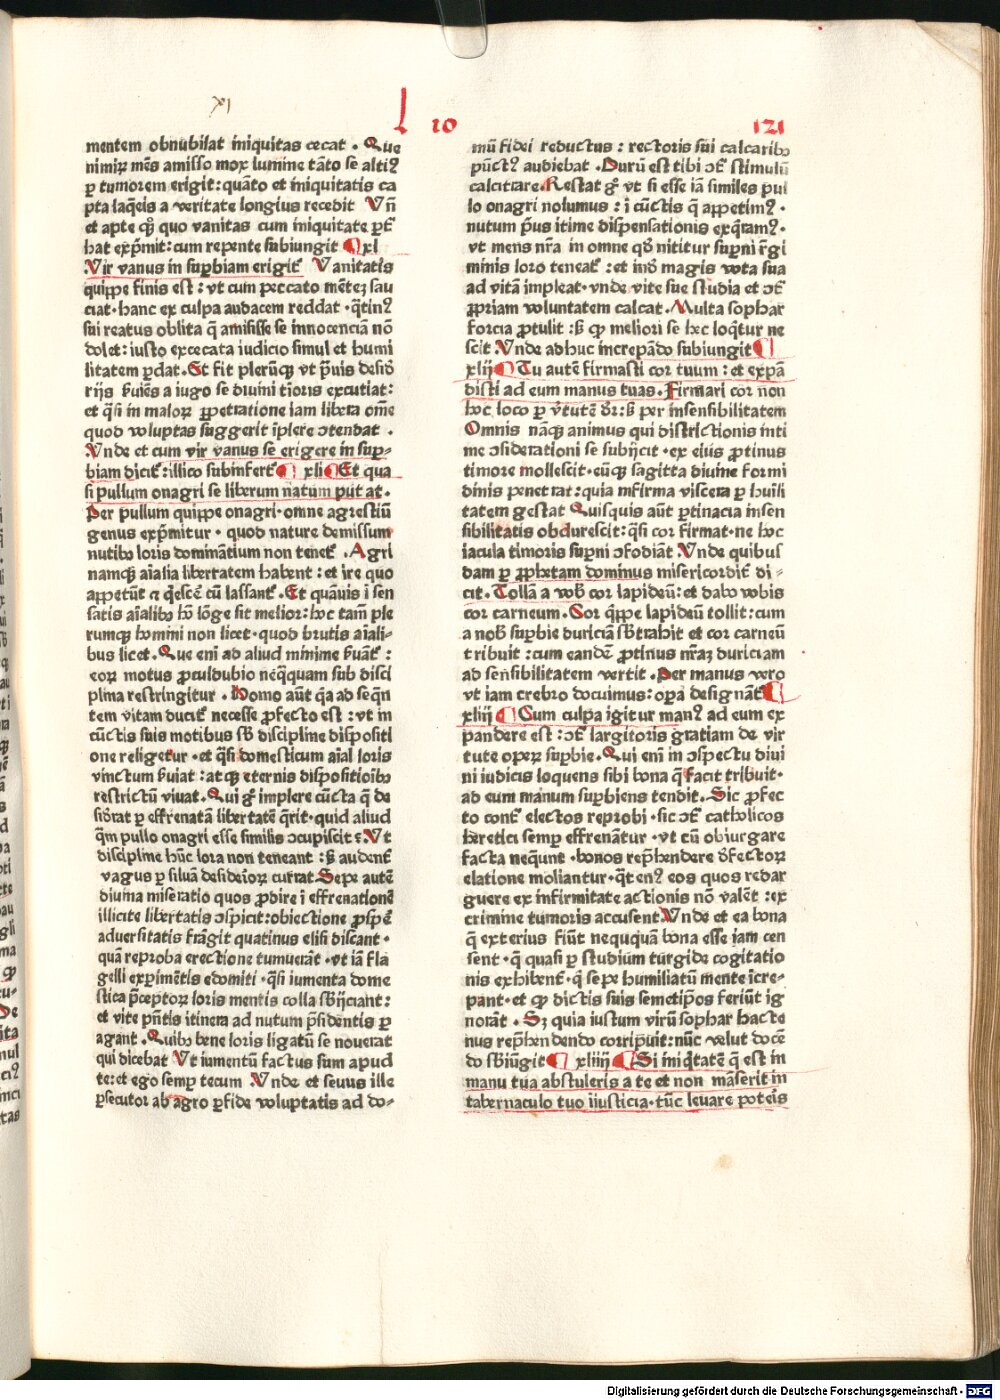 xi
L 10 121
mentem obnubilat iniquitas cecat . Que
nimiꝝ mēs amisso mox lumine tāto se altiꝰ
ꝑ tumorem erigit : quāto et iniquitatis ca
pta laq̄eis a veritate longius recedit Vn̄
et apte q̄ꝫ quo vanitas cum iniquitate ꝑt᷒
hat exp̄mit : cum repente subiungit ¶ xl
Vir vanus in suꝑbiam erigit᷒ Vanitatis
quippe finis est : vt cum peccato mēteꝫ sau
ciat · hanc ex culpa audacem reddat · q̄tinꝰ
sui reatus oblita q̄ amisisse se innocenciā nō
dolet : iusto excecata iudicio simul et humi
litatem ꝑdat . Et fit pleruꝫqꝫ vt p̄uis desid̄
rijs ẜuiēs a iugo se diuini tioris excutiat :
et q̄si in maloꝝ ꝑpetratione iam libera om̄e
quod voluptas suggerit īplere ↄtendat .
Vnde et cum vir vanus se erigere in suꝑ-
biam dicit᷒ : illico subinfert᷒ ¶ xli ¶ Et qua
si pullum onagri se liberum natum put at .
Per pullum quippe onagri · omne agrestiū
genus exp̄mitur · quod nature demissum
nutibꝫ loris domināntium non tenet᷒ . Agri
namqꝫ aīalia libertatem habent : et ire quo
appetūt ⁊ q̄escē cū lassant᷒ . Et quāuis i sen
satis aīalibꝫ hō lōge sit melior : hoc tam̄ ple
rumqꝫ homini non licet · quod brutis aīali-
bus licet . Que eni ad aliud minime ẜuāt᷒ :
eoꝝ motus ꝓculdubio neq̄quam sub disci
plina restringitur . Homo aūt qa ad seq̄n
tem vitam ducit᷒ necesse ꝓfecto est : vt in
cūctis suis motibus sb̄ discipline dispositi
one religetur · et q̄si domesticum aīal loris
vinctum ẜuiat : atqꝫ eternis dispositiōibꝫ
restrictū viuat . Qui gͦ implere cūcta q̄ de
sid̄rat ꝑ effrenatā libertatē q̄rit · quid aliud
q̄m pullo onagri esse similis ↄcupiscit : Vt
discipline hūc lora non teneant : ẜ audent᷒
vagus ꝑ siluā desideꝛioꝝ currat . Sepe autē
diuina miseratio quos ꝓdire i effrenationē
illicite libertatis ↄspicit : obiectione ꝓspē᷒
aduersitatis frāgit quatinus elisi discant ·
quā reproba erectione tumuerāt · vt iā fla
gelli exꝑimētis edomiti · q̄si iumenta dome
stica p̄ceptoꝝ loris mentis colla sb̄ijciant :
et vite p̄ntis itinera ad nutum p̄sidentis ꝑ
agant . Quibꝫ bene loris ligatū se nouerat
qui dicebat Vt iumentū factus sum apud
te : et ego semꝑ tecum Vnde et seuus ille
ꝑsecutor ab agro ꝑfide voluptatis ad do-
mū fidei reductus : rectoris sui calcaribꝫ
pūctꝰ audiebat . Durū est tibi ↄt᷒ stimulū
calcitrare . Restat gͦ vt si esse iā similes pul
lo onagri nolumus : i cūctis q̄ appetimꝰ ·
nutum p̄us itime dispensationis exq̄ramꝰ ·
vt mens nr̄a in omne qd̄ nititur suꝑni r̄gi
minis loro teneat᷒ : et indͦ magis vota sua
ad vitā impleat · vnde vite sue studia et ↄt᷒
ꝓpriam voluntatem calcat . Multa sophar
forcia ꝓtulit : ẜ ꝙ meliori se hec loq̄tur ne
scit . Vnde ad huc increpādo subiungit ¶
xlij ¶ Tu autē firmasti cor tuum : et expā
disti ad eum manus tuas . Firmari cor non
hoc loco ꝑ v̄tutē dꝛ : ẜ per insensibilitatem
Omnis nāqꝫ animus qui districtionis inti
me ↄsiderationi se subijcit · ex eius ꝓtinus
timore mollescit · eūqꝫ sagitta diuine formi
dinis penetrat : quia infirma viscera ꝑ huili
tatem gestat Quisquis aūt ꝑtinacia insen
sibilitatis obdurescit : q̄si cor firmat · ne hoc
iacula timoris suꝑni ↄfodiāt Vnde quibus
dam ꝑ ꝓphetam dominus misericordit᷒ di-
cit . Tollā a vob̄ cor lapideū : et dabo vobis
cor carneum . Cor q̄ippe lapideū tollit : cum
a nob̄ suꝑbie duriciā sb̄trahit et cor carneū
tribuit : cum eandē ꝓtinus nr̄aꝫ duriciam
ad sensibilitatem vertit . Per manus vero
vt iam crebro docuimus : oꝑa designāt᷒ ¶
xliij ¶ Cum culpa igitur manꝰ ad eum ex
pandere est : ↄt᷒ largitoris gratiam de vir
tute opeꝝ suꝑbie . Qui eni in ↄspectu diui
ni iudicis loquens sibi bona q̄ facit tribuit ·
ad eum manum suꝑbiens tendit . Sic ꝓfec
to cont᷒ electos reprobi · sic ↄt᷒ catholicos
heretici semꝑ effrenātur · vt cū obiurgare
facta neq̄unt · bonos rep̄hendere d̄fectoꝝ
elatione moliantur · q̄tenꝰ eos quos redar
guere ex infirmitate actionis nō valēt : ex
crimine tumoris accusent . Vnde et ea bona
q̄ exterius fiūt neququā bona esse iam cen
sent · q̄ quasi ꝑ studium turgide cogitatio
nis exhibent᷒ · q̄ sepe humiliatū mente īcre-
pant · et ꝙ dictis suis semetip̄os feriūt ig
norāt . Sꝫ quia iustum virū sophar hacte
nus rep̄hendendo corripuit : nūc velut docē
do sb̄iūgit ¶ xliiij ¶ Si iniq̄tatē q̄ est in
manu tua abstuleris a te et non māserit in
tabernaculo tuo iiusticia · tūc leuare poteis
Digitalisierung gefördert durch die Deutsche Forschungsgemeinschaft - DFG